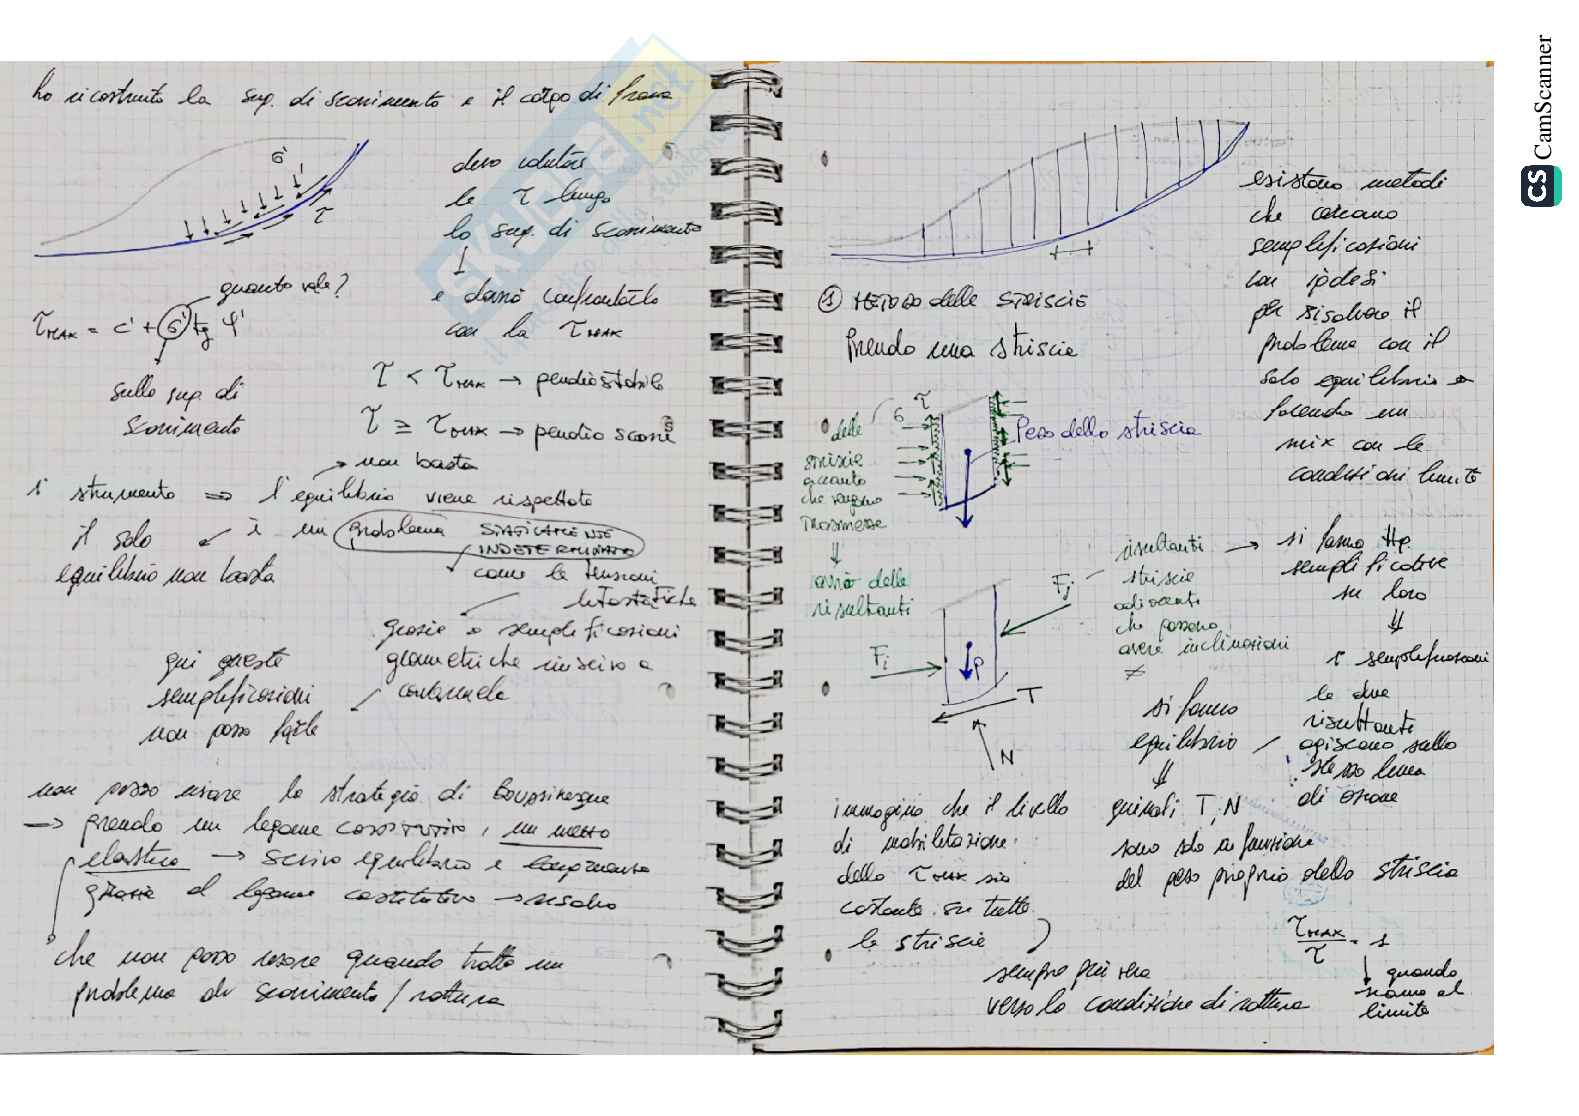 ho ricostruito la sup. di scorrimento e il corpo di frana
σ'
τ
devo valutare
le τ lungo
la sup. di scorrimento
e dovrò confrontarlo
con la τMAX
quanto vale?
τMAX = c' + σ' tg φ'
sulla sup. di
scorrimento
τ < τMAX → pendio stabile
τ ≥ τMAX → pendio scorre
→ non basta
1° strumento ⇒ l'equilibrio viene rispettato
è un problema STATICAMENTE
INDETERMINATO
il solo
equilibrio non basta
come le tensioni
litostatiche
grazie a semplificazioni
geometriche riuscivo a
qui queste
semplificazioni
non posso farle
non posso usare la strategia di Boussinesque
→ prendo un legame COSTITUTIVO, un mezzo
elastico → scrivo equilibrio e congruenza
grazie al legame costitutivo → risolvo
che non posso usare quando tratto un
problema di scorrimento / rottura
esistono metodi
che cercano
semplificazioni
con ipotesi
per risolvere il
problema con il
solo equilibrio →
facendo un
mix con le
condizioni limite
① METODO delle STRISCIE
Prendo una striscia
σ τ
Peso della striscia
delle
striscie
accanto
che vengono
trasmesse
⇓
avrò delle
risultanti
Fi
Fj
P
T
N
risultanti
striscie
adiacenti
che possono
avere inclinazioni
≠
→ si fanno Hp.
semplificative
su loro
⇓
1° semplificazioni
le due
risultanti
agiscono sulla
stessa linea
di azione
si fanno
equilibrio
⇓
quindi T, N
sono solo in funzione
del peso proprio della striscia
immagino che il livello
di mobilitazione
della τMAX sia
costante su tutte
le striscie
sempre più vera
verso la condizione di rottura
τMAX / τ = 1
quando
siamo al
limite
CS CamScanner
SKUOLA.net